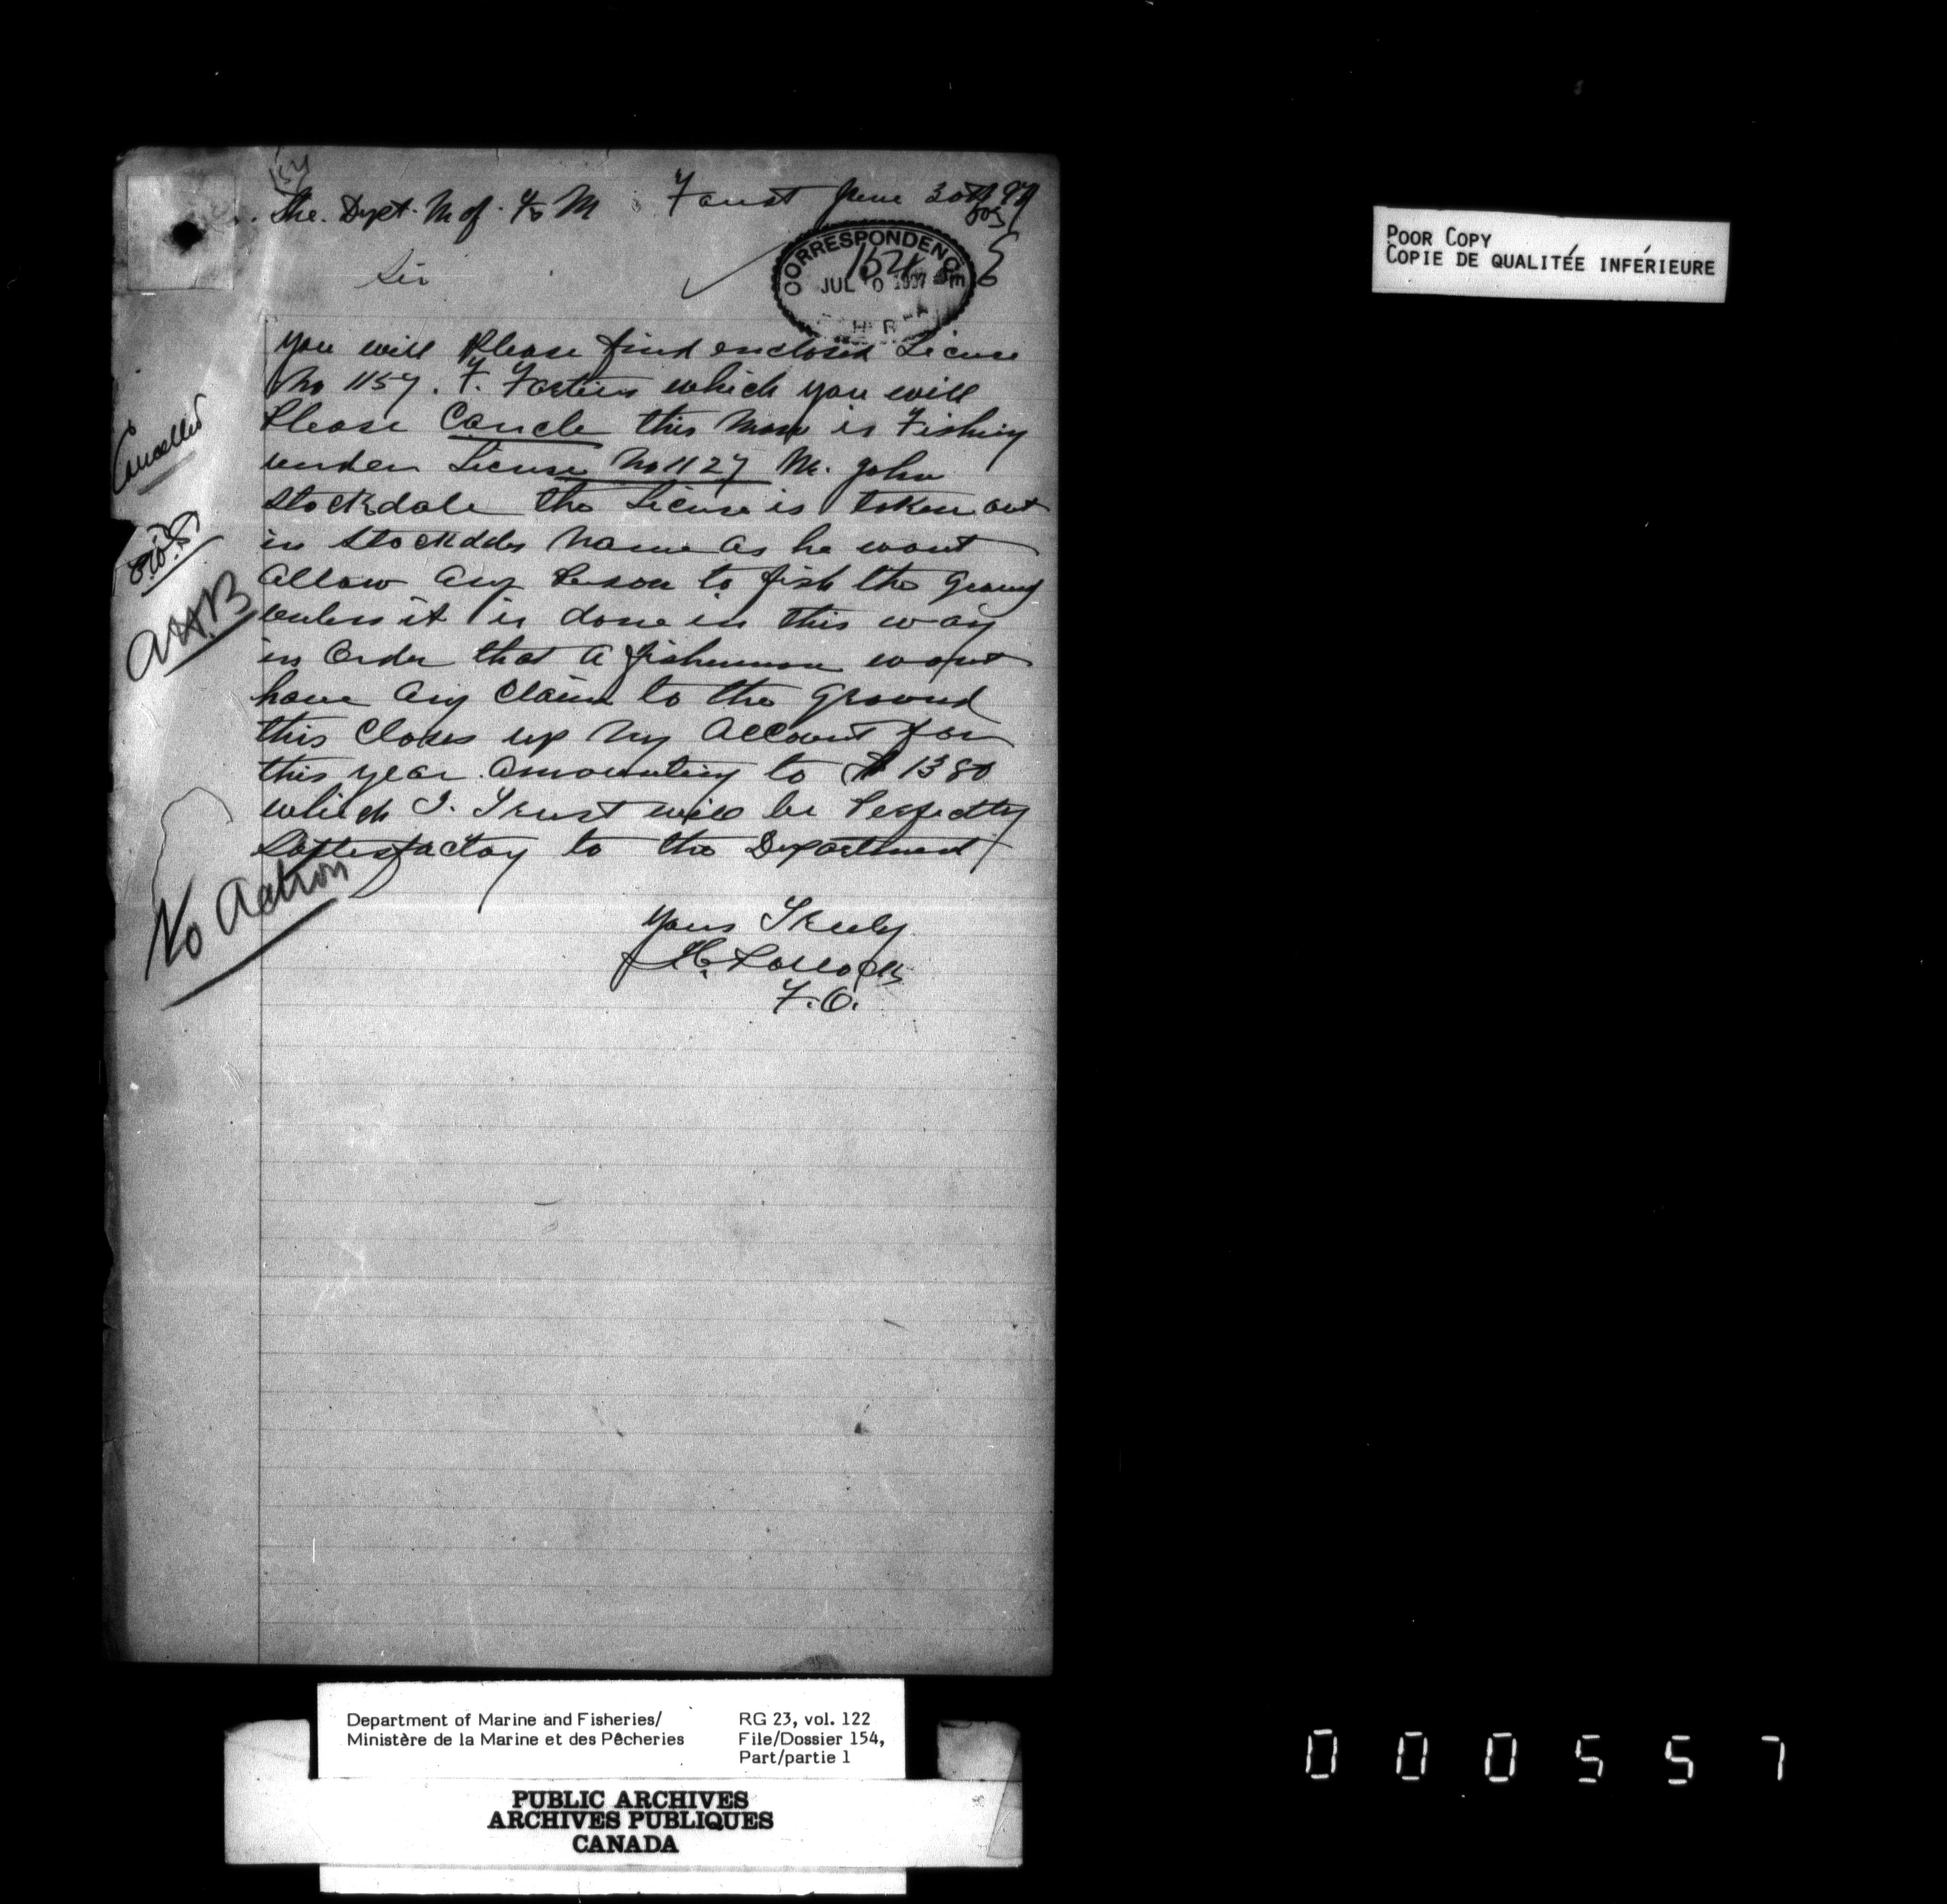 154
The. Dept. M of. F & M Faust June 30th 97
Sir
CORRESPONDENCE
1521
JUL 1897
you will Please find enclosed License
No 1157. F. Fortier which you will
Please Cancle this man is Fishing
under License No 1127 M. John
Stockdale the License is taken out
in Stockdales Name as he wont
allow any Person to fish the ground
unless it is done in this way
in Order that a fisherman wont
have any Claim to the ground
this Closes up my account for
this year amounting to $ 1380
which I. Trust will be Perfectly
Sattesfactory to the Department
yours Truly
H. Pollock
F.O.
Cancelled
No Action
POOR COPY
COPIE DE QUALITÉE INFÉRIEURE
Department of Marine and Fisheries/
Ministère de la Marine et des Pêcheries
RG 23, vol. 122
File/Dossier 154,
Part/partie 1
PUBLIC ARCHIVES
ARCHIVES PUBLIQUES
CANADA
000557